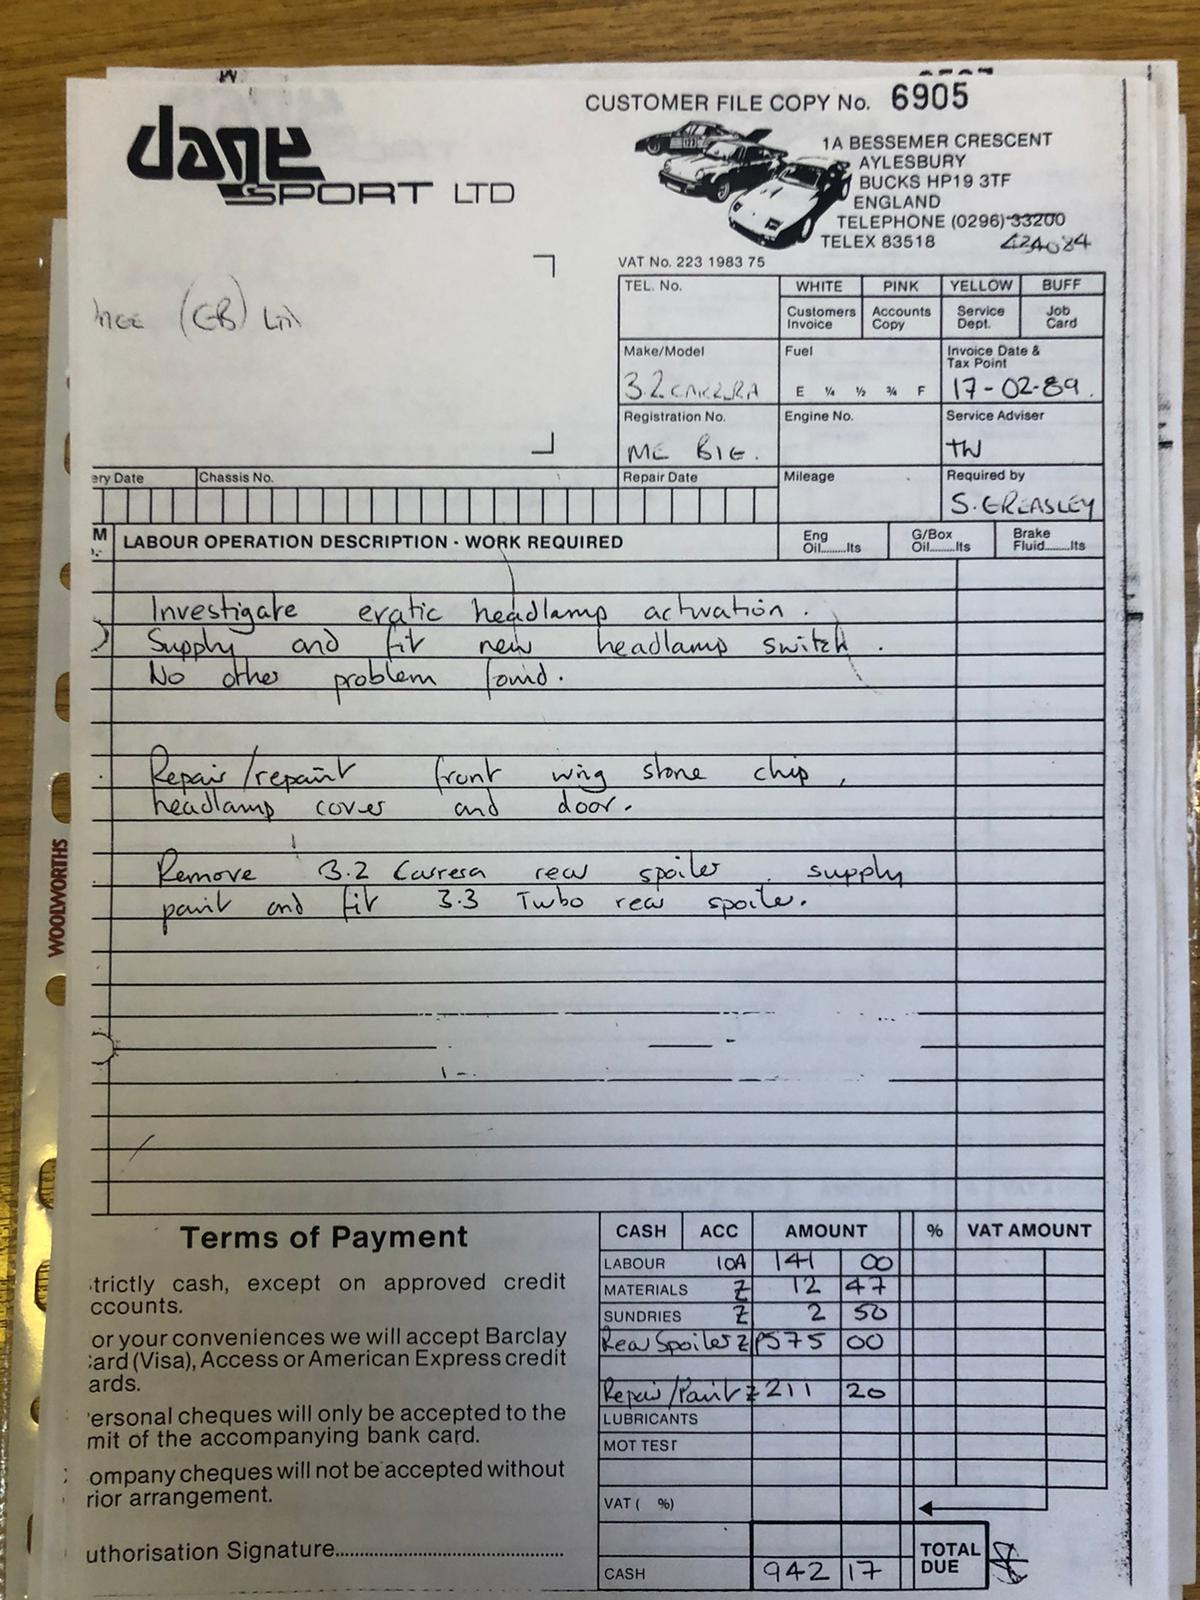 CUSTOMER FILE COPY No. 6905
dage
SPORT LTD
1A BESSEMER CRESCENT
AYLESBURY
BUCKS HP19 3TF
ENGLAND
TELEPHONE (0296) 33200
TELEX 83518
VAT No. 223 1983 75
(GB) Ltd
TEL. No.
WHITE PINK YELLOW BUFF
Customers Invoice Accounts Copy Service Dept. Job Card
Make/Model Fuel Invoice Date & Tax Point
3.2 CARRERA E ¼ ½ ¾ F 17-02-89.
Registration No. Engine No. Service Adviser
TW
ery Date Chassis No. Repair Date Mileage Required by
S. GREASLEY
M LABOUR OPERATION DESCRIPTION - WORK REQUIRED Eng Oil......lts G/Box Oil......lts Brake Fluid......lts
Investigate eratic headlamp activation.
Supply and fit new headlamp switch.
No other problem found.
Repair/repaint front wing stone chip,
headlamp cover and door.
Remove 3.2 Carrera rear spoiler supply
paint and fit 3.3 Turbo rear spoiler.
WOOLWORTHS
Terms of Payment
trictly cash, except on approved credit
ccounts.
or your conveniences we will accept Barclay
ard (Visa), Access or American Express credit
ards.
ersonal cheques will only be accepted to the
mit of the accompanying bank card.
ompany cheques will not be accepted without
rior arrangement.
uthorisation Signature
CASH ACC AMOUNT % VAT AMOUNT
LABOUR 10A 141 00
MATERIALS Z 12 47
SUNDRIES Z 2 50
Rear Spoiler Z P575 00
Repair/Paint Z 211 20
LUBRICANTS
MOT TEST
VAT ( %)
CASH 942 17 TOTAL DUE